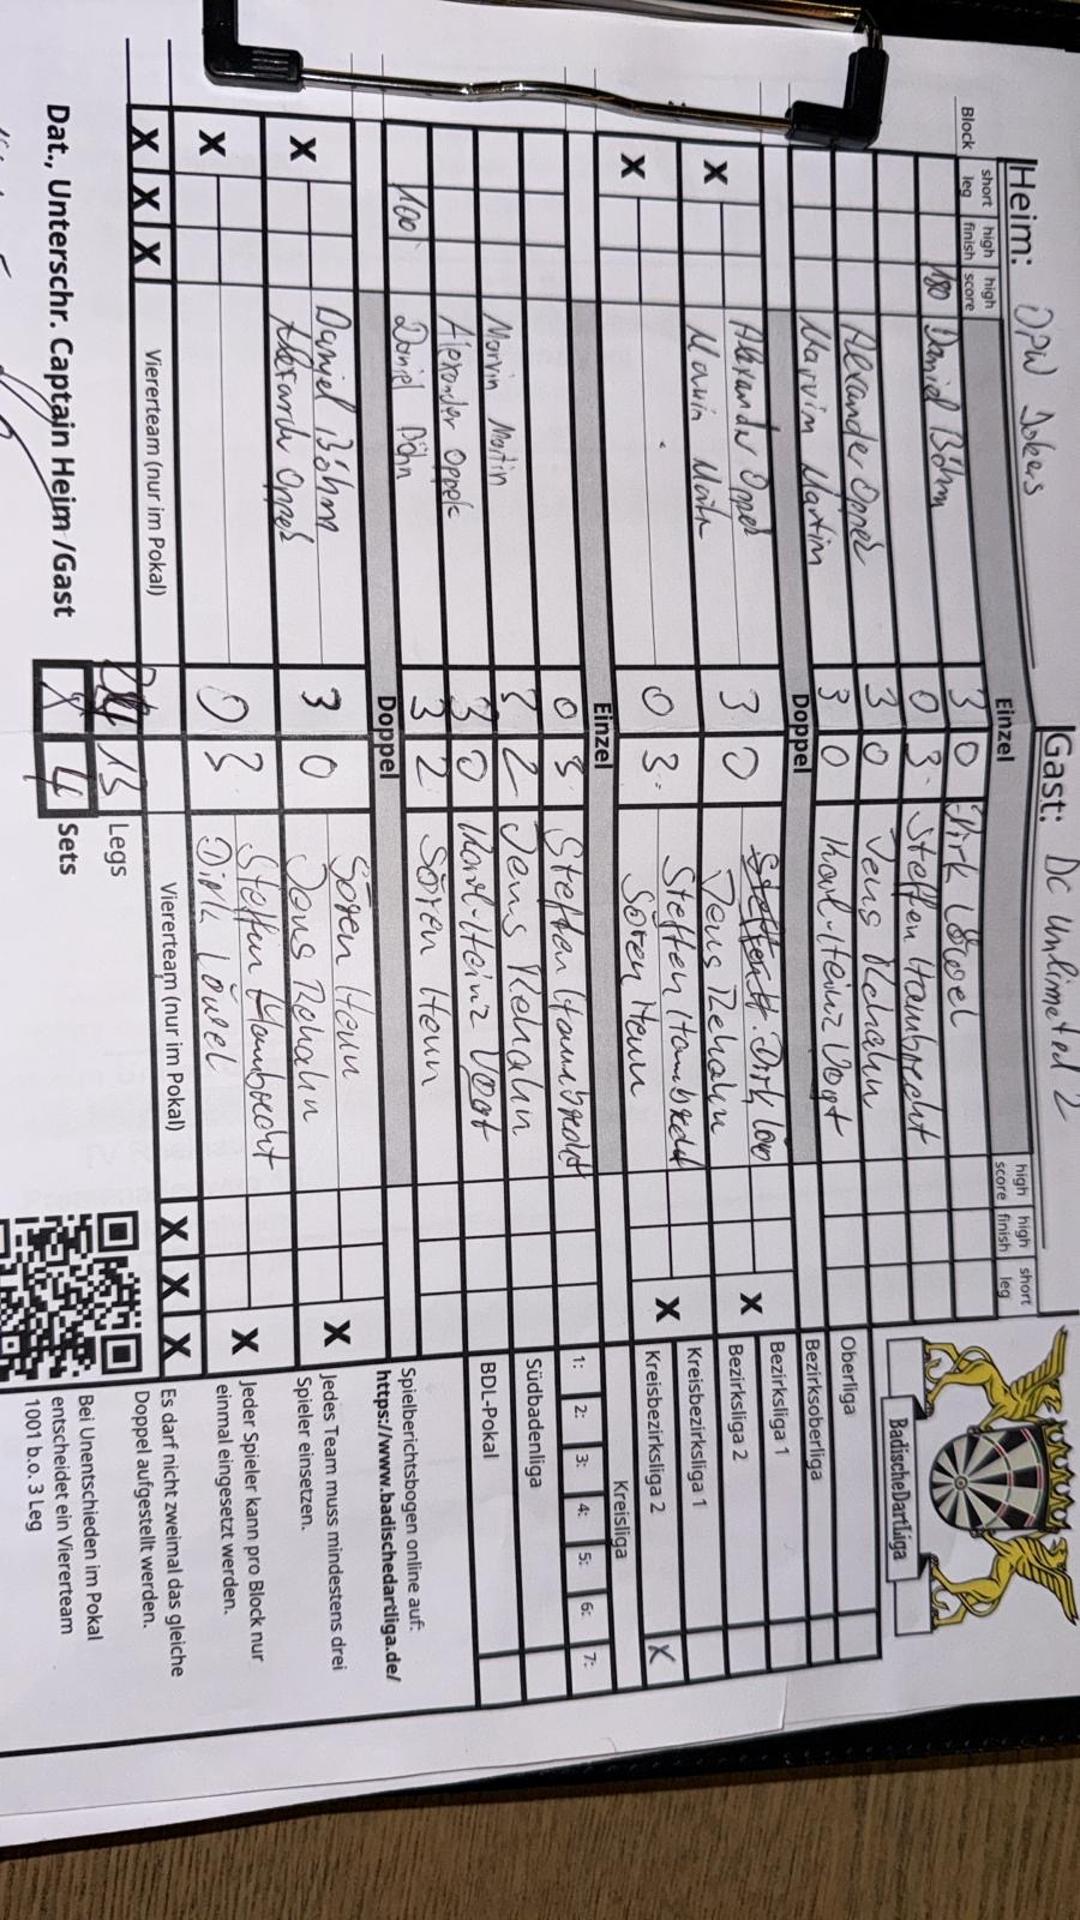 Heim: DPW Jokers
Gast: Dc Unlimeted 2
Block
short leg
high finish
high score
Einzel
high score
high finish
short leg
180 Daniel Böhm 3 0 Dirk Löwel
0 3 Steffen Hambrecht
Alexander Oppek 3 0 Jens Rehahn
Marvin Martin 3 0 Karl-Heinz Vogt
Doppel
X Alexander Oppek 3 0 Steffen H. Dirk Löw X
Marvin Martin Jens Rehahn
X 0 3 Steffen Hambrecht X
Sören Heun
Einzel
0 3 Steffen Hambrecht
Marvin Martin 3 2 Jens Rehahn
Alexander Oppek 3 0 Karl-Heinz Vogt
100 Daniel Böhm 3 2 Sören Heun
Doppel
X Daniel Böhm 3 0 Sören Heun X
Alexander Oppek Jens Rehahn
X 0 3 Steffen Hambrecht X
Dirk Löwel
X X X Viererteam (nur im Pokal) Viererteam (nur im Pokal) X X X
13 Legs
4 Sets
Dat., Unterschr. Captain Heim /Gast
BadischeDartLiga
Oberliga
Bezirksoberliga
Bezirksliga 1
Bezirksliga 2
Kreisbezirksliga 1
Kreisbezirksliga 2 X
Kreisliga
1: 2: 3: 4: 5: 6: 7:
Südbadenliga
BDL-Pokal
Spielberichtsbogen online auf:
https://www.badischedartliga.de/
Jedes Team muss mindestens drei
Spieler einsetzen.
Jeder Spieler kann pro Block nur
einmal eingesetzt werden.
Es darf nicht zweimal das gleiche
Doppel aufgestellt werden.
Bei Unentschieden im Pokal
entscheidet ein Viererteam
1001 b.o. 3 Leg